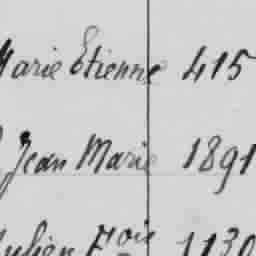 Marie Etienne 415
Jean Marie 1891
Julien Fois 1130